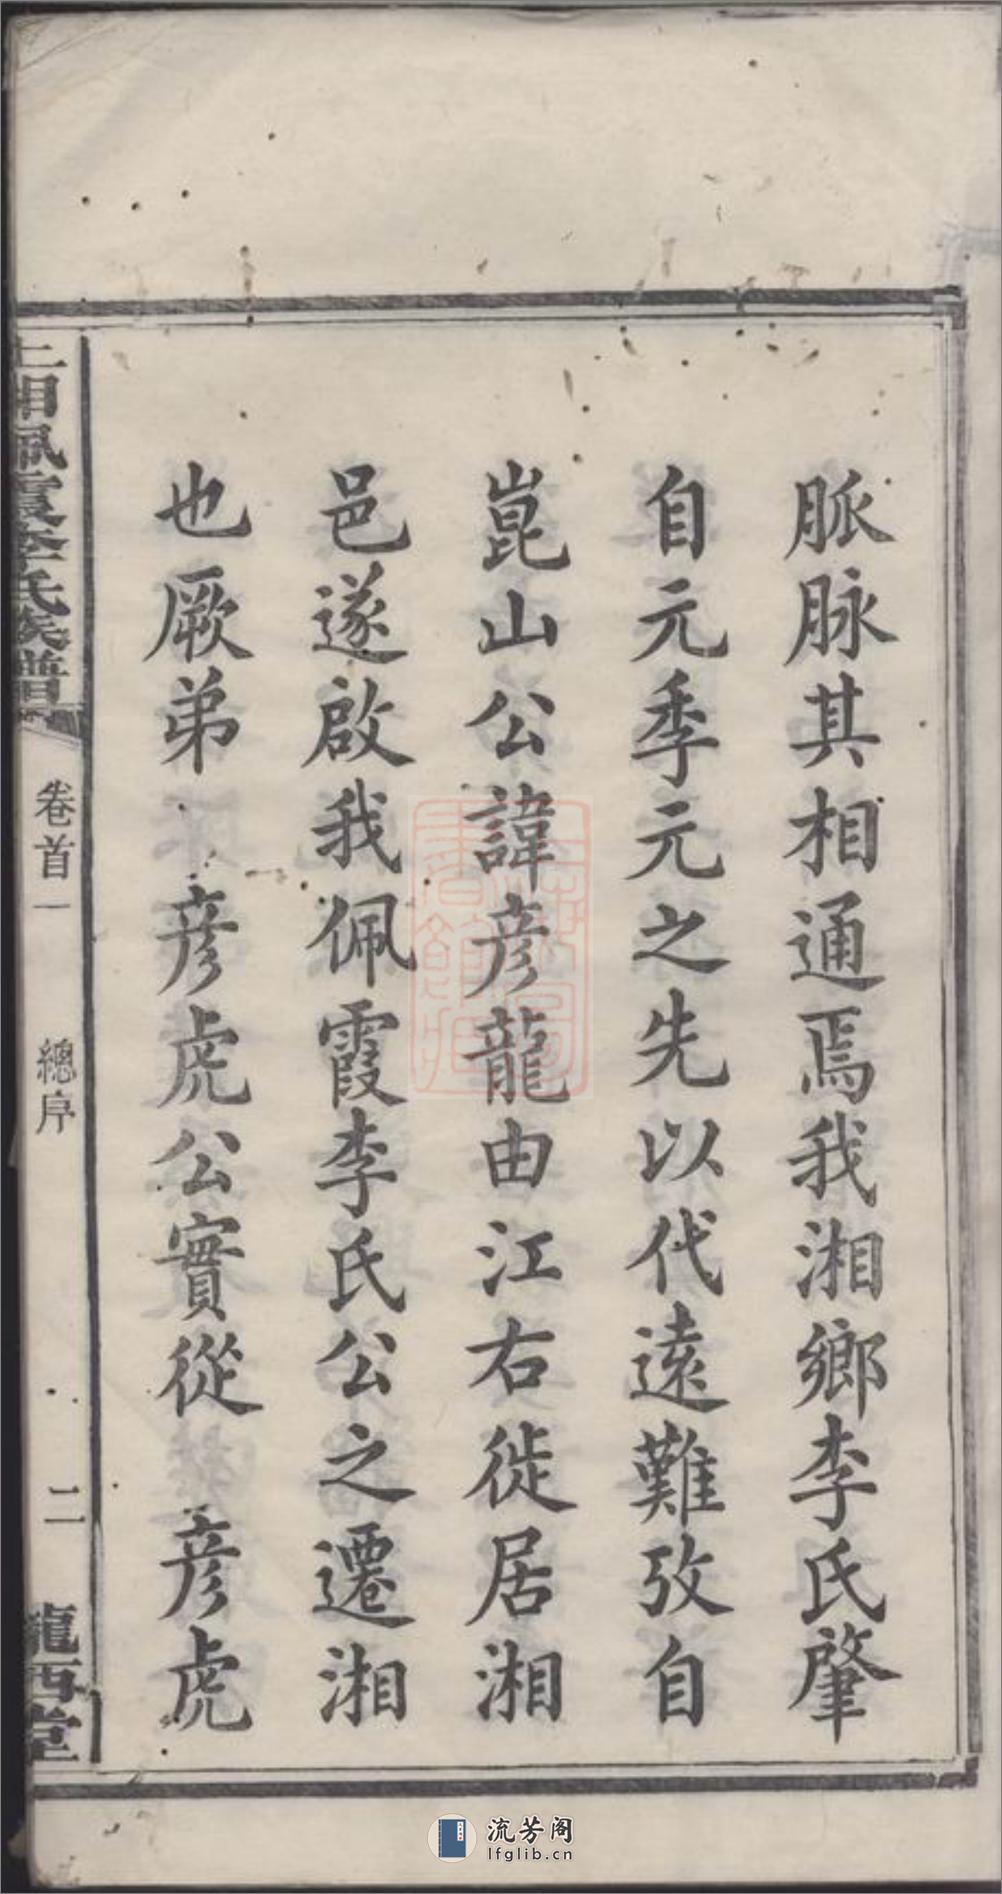 脈脉其相通焉我湘鄉李氏肇
自元季元之先以代遠難攷自
崑山公諱彦龍由江右徙居湘
邑遂啟我佩霞李氏公之遷湘
也厥弟 彦虎公實從 彦虎
上湘佩霞李氏族譜 卷首一 總序 二 隴西堂
流芳阁
lfglib.cn